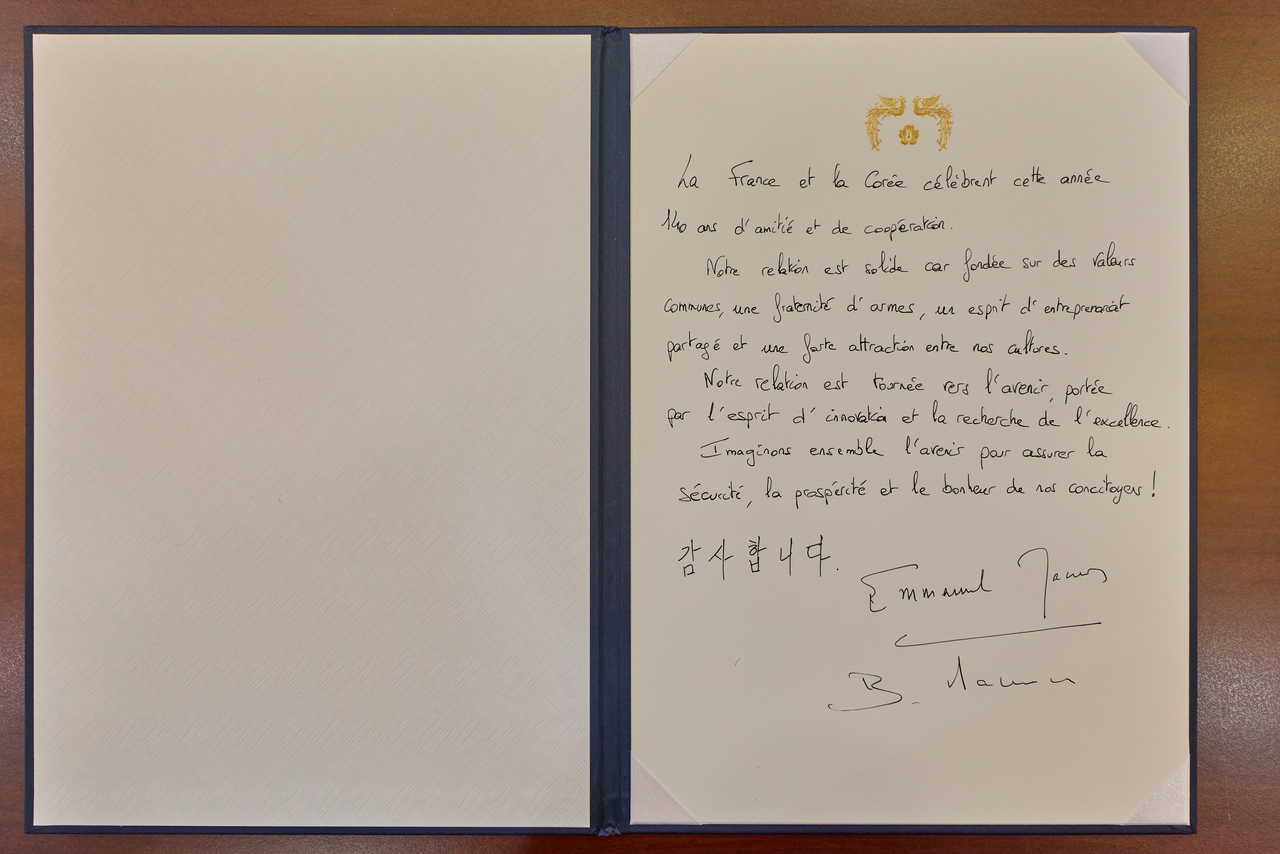 La France et la Corée célèbrent cette année
140 ans d'amitié et de coopération.
Notre relation est solide car fondée sur des valeurs
communes, une fraternité d'armes, un esprit d'entreprenariat
partagé et une forte attraction entre nos cultures.
Notre relation est tournée vers l'avenir, portée
par l'esprit d'innovation et la recherche de l'excellence.
Imaginons ensemble l'avenir pour assurer la
sécurité, la prospérité et le bonheur de nos concitoyens !
감사합니다.
Emmanuel Macron
B. Macron